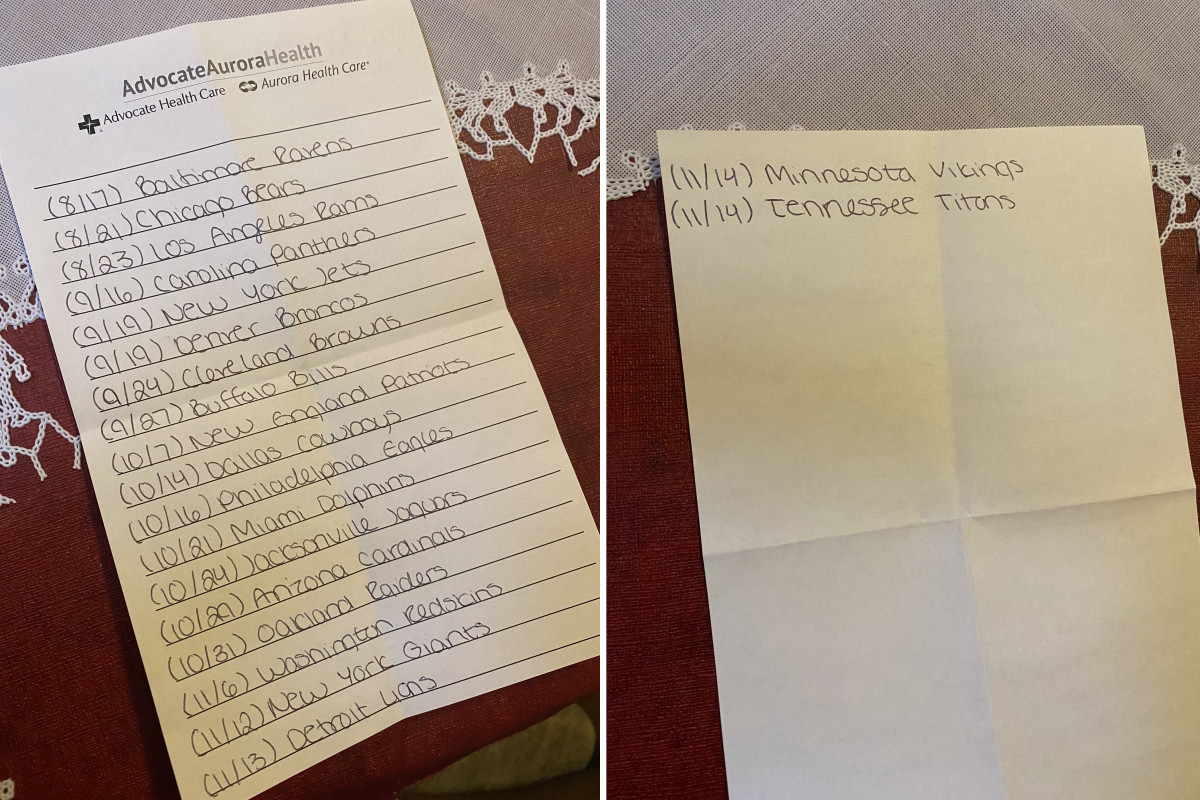 AdvocateAuroraHealth
Advocate Health Care Aurora Health Care
(8/17) Baltimore Ravens
(8/21) Chicago Bears
(8/23) Los Angeles Rams
(9/16) Carolina Panthers
(9/19) New York Jets
(9/19) Denver Broncos
(9/24) Cleveland Browns
(9/27) Buffalo Bills
(10/7) New England Patriots
(10/14) Dallas Cowboys
(10/16) Philadelphia Eagles
(10/21) Miami Dolphins
(10/24) Jacksonville Jaguars
(10/29) Arizona Cardinals
(10/31) Oakland Raiders
(11/6) Washington Redskins
(11/12) New York Giants
(11/13) Detroit Lions
(11/14) Minnesota Vikings
(11/14) Tennessee Titans